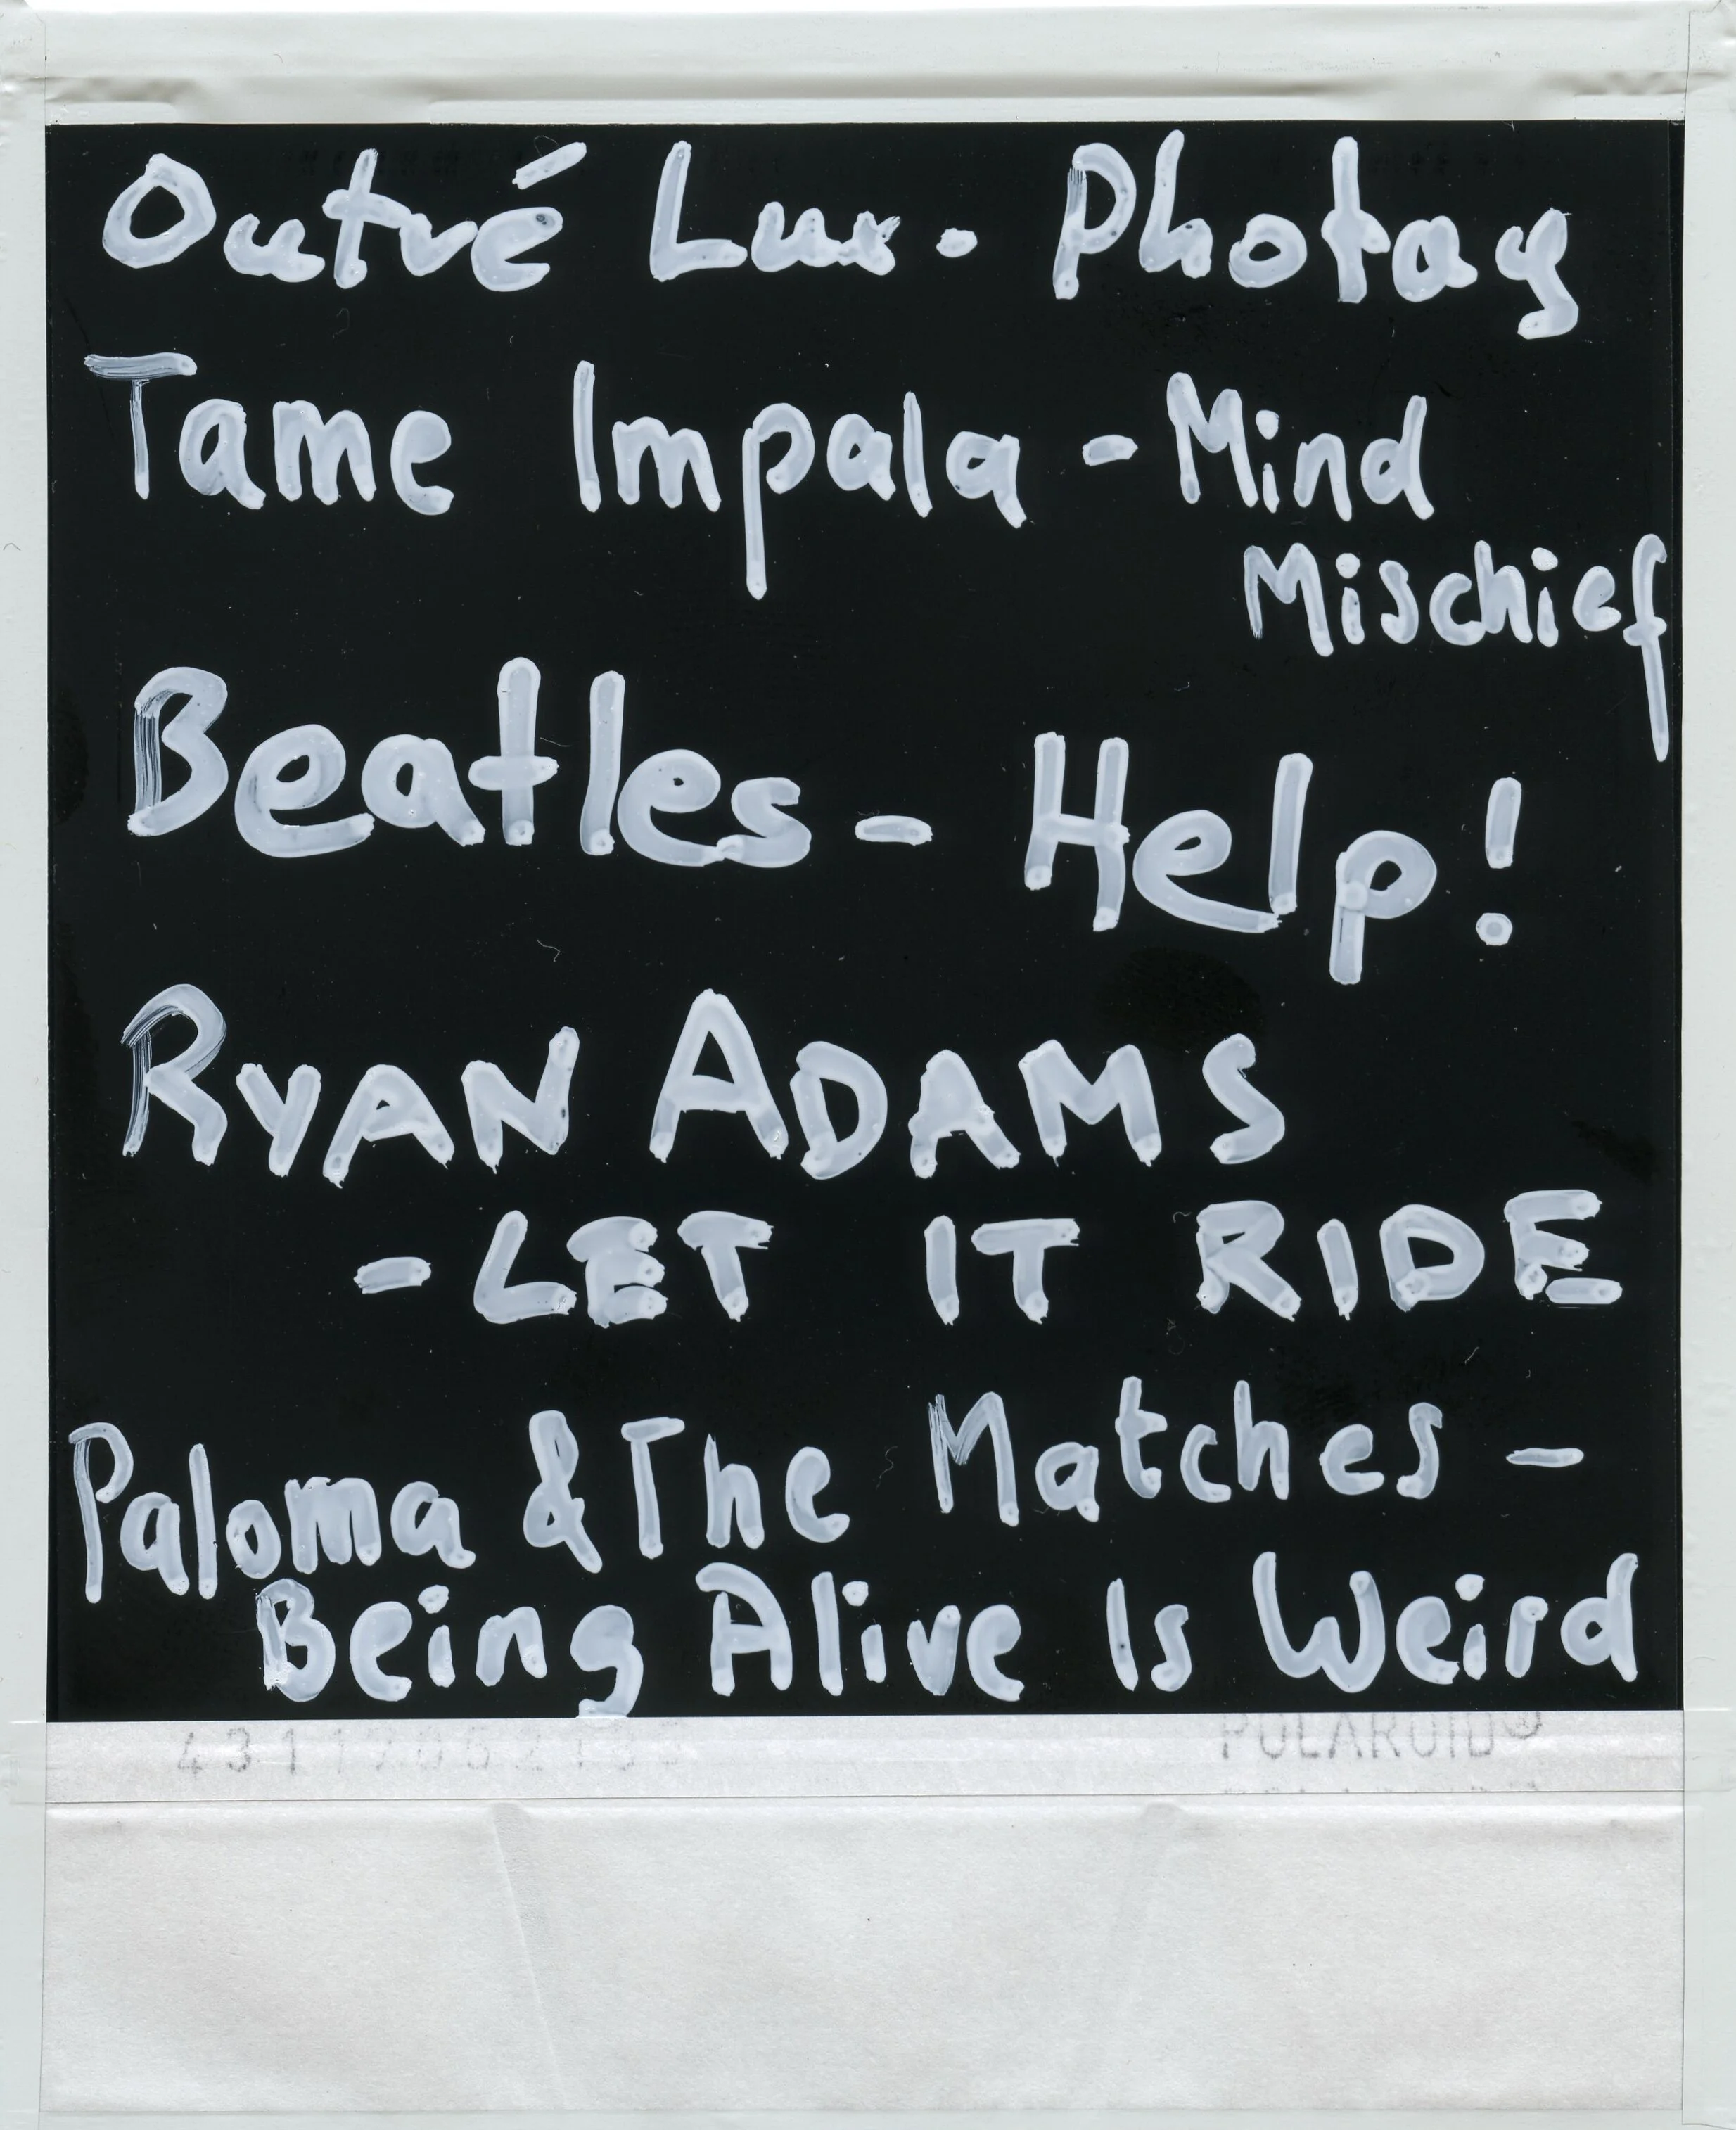 Outré Lux. Photay
Tame Impala - Mind
Mischief
Beatles - Help!
RYAN ADAMS
- LET IT RIDE
Paloma & The Matches -
Being Alive Is Weird
POLAROID